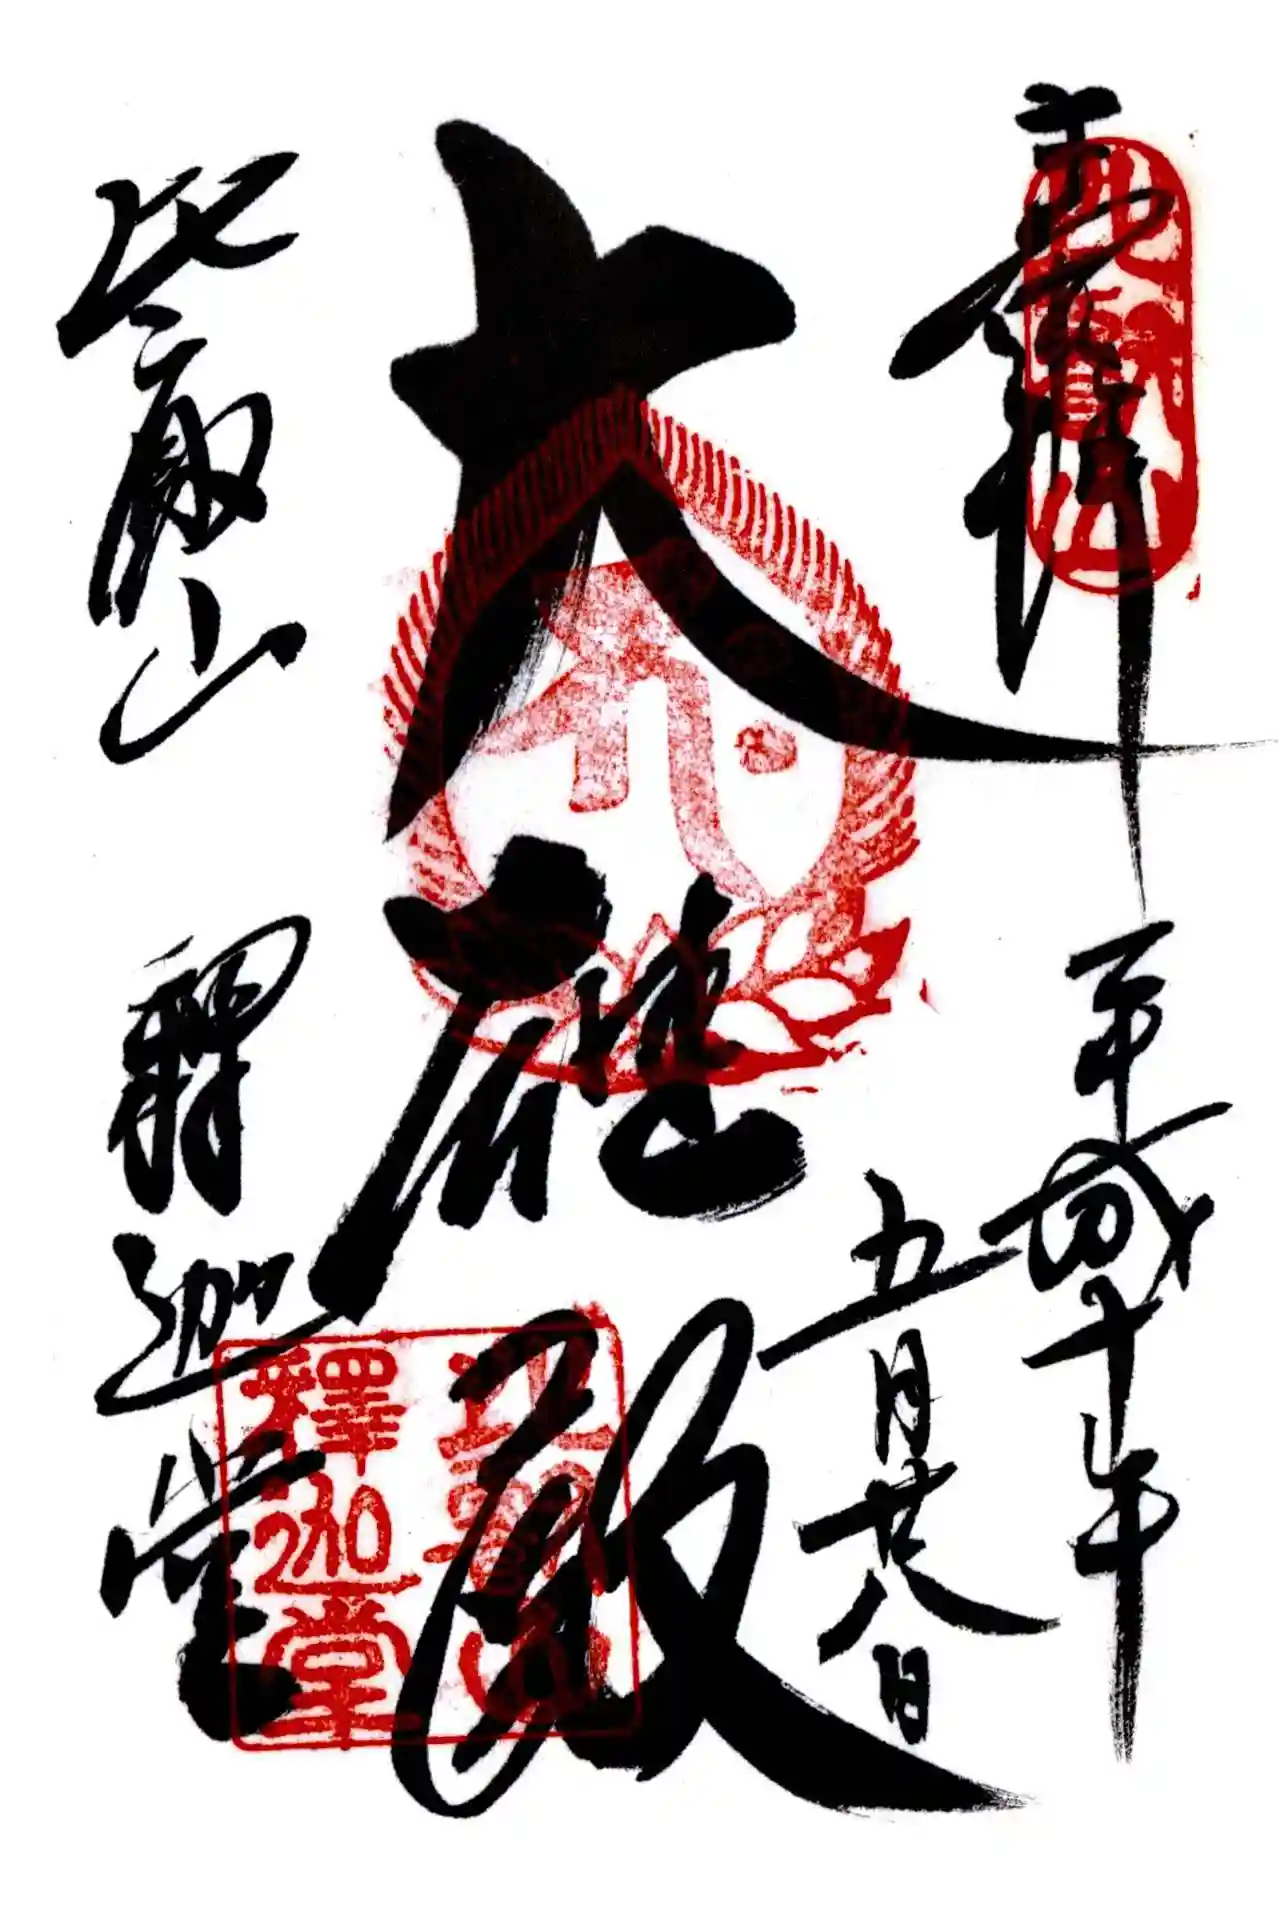 奉拝
平成十年
五月廿八日
大
比叡山 釋迦堂
比叡山
比叡山
釋迦堂